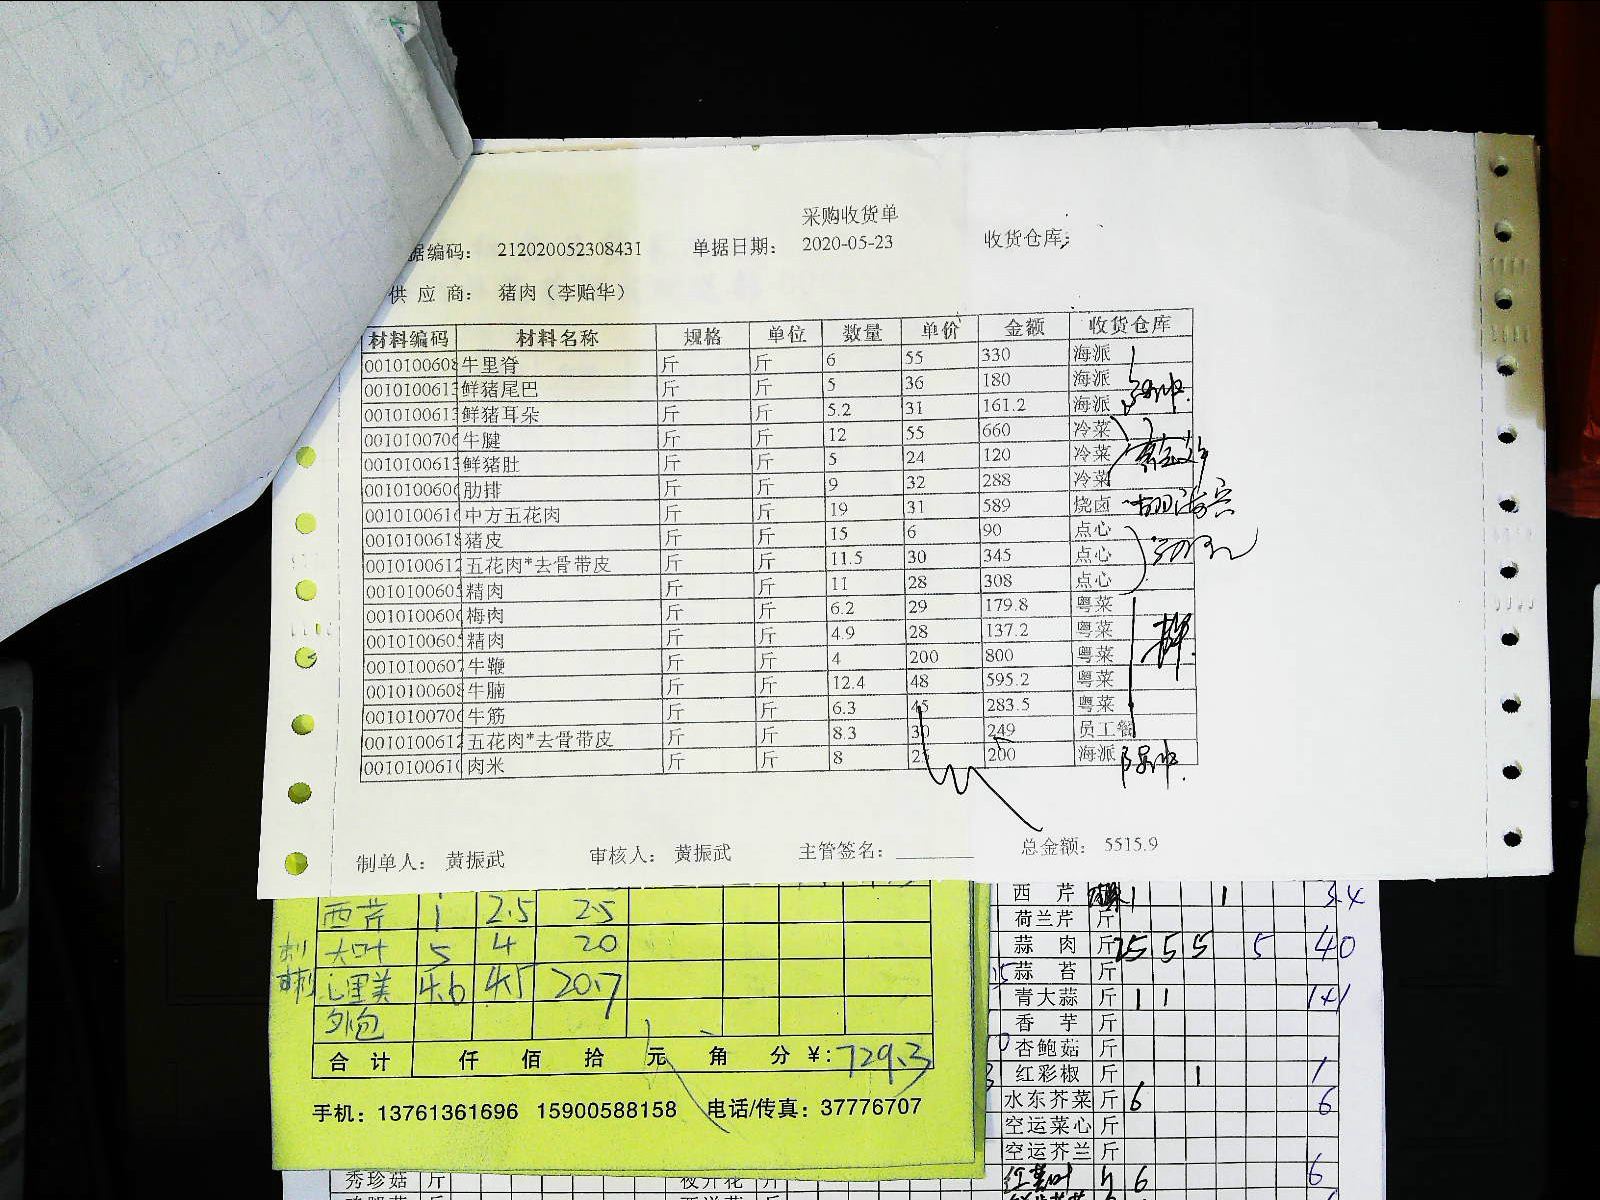 采购收货单
据编码： 212020052308431 单据日期： 2020-05-23 收货仓库：
供 应 商： 猪肉（李贻华）
材料编码 材料名称 规格 单位 数量 单价 金额 收货仓库
0010100608 牛里脊 斤 斤 6 55 330 海派
001010061 鲜猪尾巴 斤 斤 5 36 180 海派
001010061 鲜猪耳朵 斤 斤 5.2 31 161.2 海派
0010100706 牛腱 斤 斤 12 55 660 冷菜
001010061 鲜猪肚 斤 斤 5 24 120 冷菜
001010060 肋排 斤 斤 9 32 288 冷菜
001010061 中方五花肉 斤 斤 19 31 589 烧卤
0010100618 猪皮 斤 斤 15 6 90 点心
0010100612 五花肉*去骨带皮 斤 斤 11.5 30 345 点心
001010060 精肉 斤 斤 11 28 308 点心
001010060 梅肉 斤 斤 6.2 29 179.8 粤菜
001010060 精肉 斤 斤 4.9 28 137.2 粤菜
001010060 牛鞭 斤 斤 4 200 800 粤菜
0010100608 牛腩 斤 斤 12.4 48 595.2 粤菜
0010100706 牛筋 斤 斤 6.3 45 283.5 粤菜
0010100612 五花肉*去骨带皮 斤 斤 8.3 30 249 员工餐
001010061 肉米 斤 斤 8 25 200 海派
制单人： 黄振武 审核人： 黄振武 主管签名： 总金额： 5515.9
西芹 1 2.5 2.5
大叶 5 4 20
心里美 4.6 4.5 20.7
外包
合计 仟 佰 拾 元 角 分 ¥: 729.3
手机：13761361696 15900588158 电话/传真：37776707
西 芹 1 1 3.4
荷兰芹 斤
蒜 肉 斤 25 5 5 5 40
蒜 苔 斤
青大蒜 斤 1 1 1+1
香 芋 斤
杏鲍菇 斤
红彩椒 斤 1 1
水东芥菜 斤 6 6
空运菜心 斤
空运芥兰 斤
6 6
秀珍菇 斤 夜开花 斤